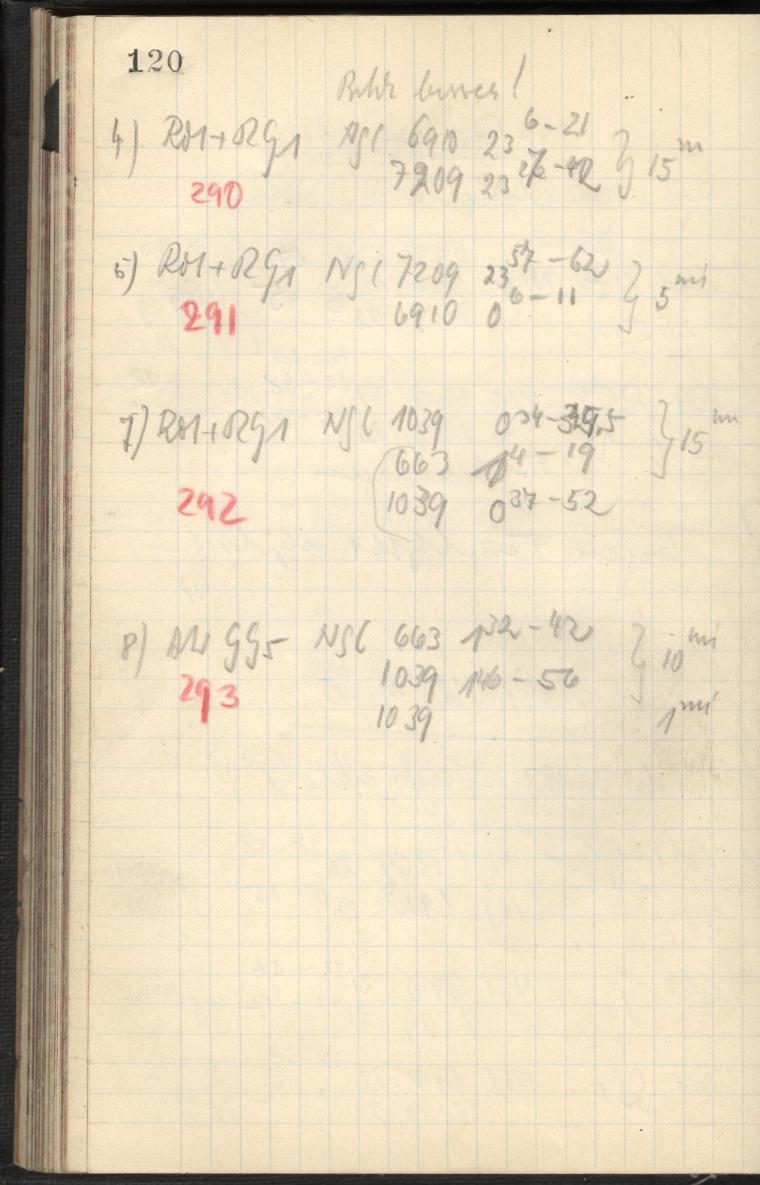 120
Bilder besser!
4) RM+RG1 NGC 6910 23 6-21 } 15 m
7209 23 27-42
290
6) RM+RG1 NGC 7209 23 57-62 } 5 mi
291 6910 0 6-11
7) RM+RG1 NGC 1039 0 34-39,5 } 15 m
663 1 4-19
292 1039 0 37-52
8) GG5 NGC 663 1 32-42 } 10 mi
293 1039 1 46-56
1039 1 mi